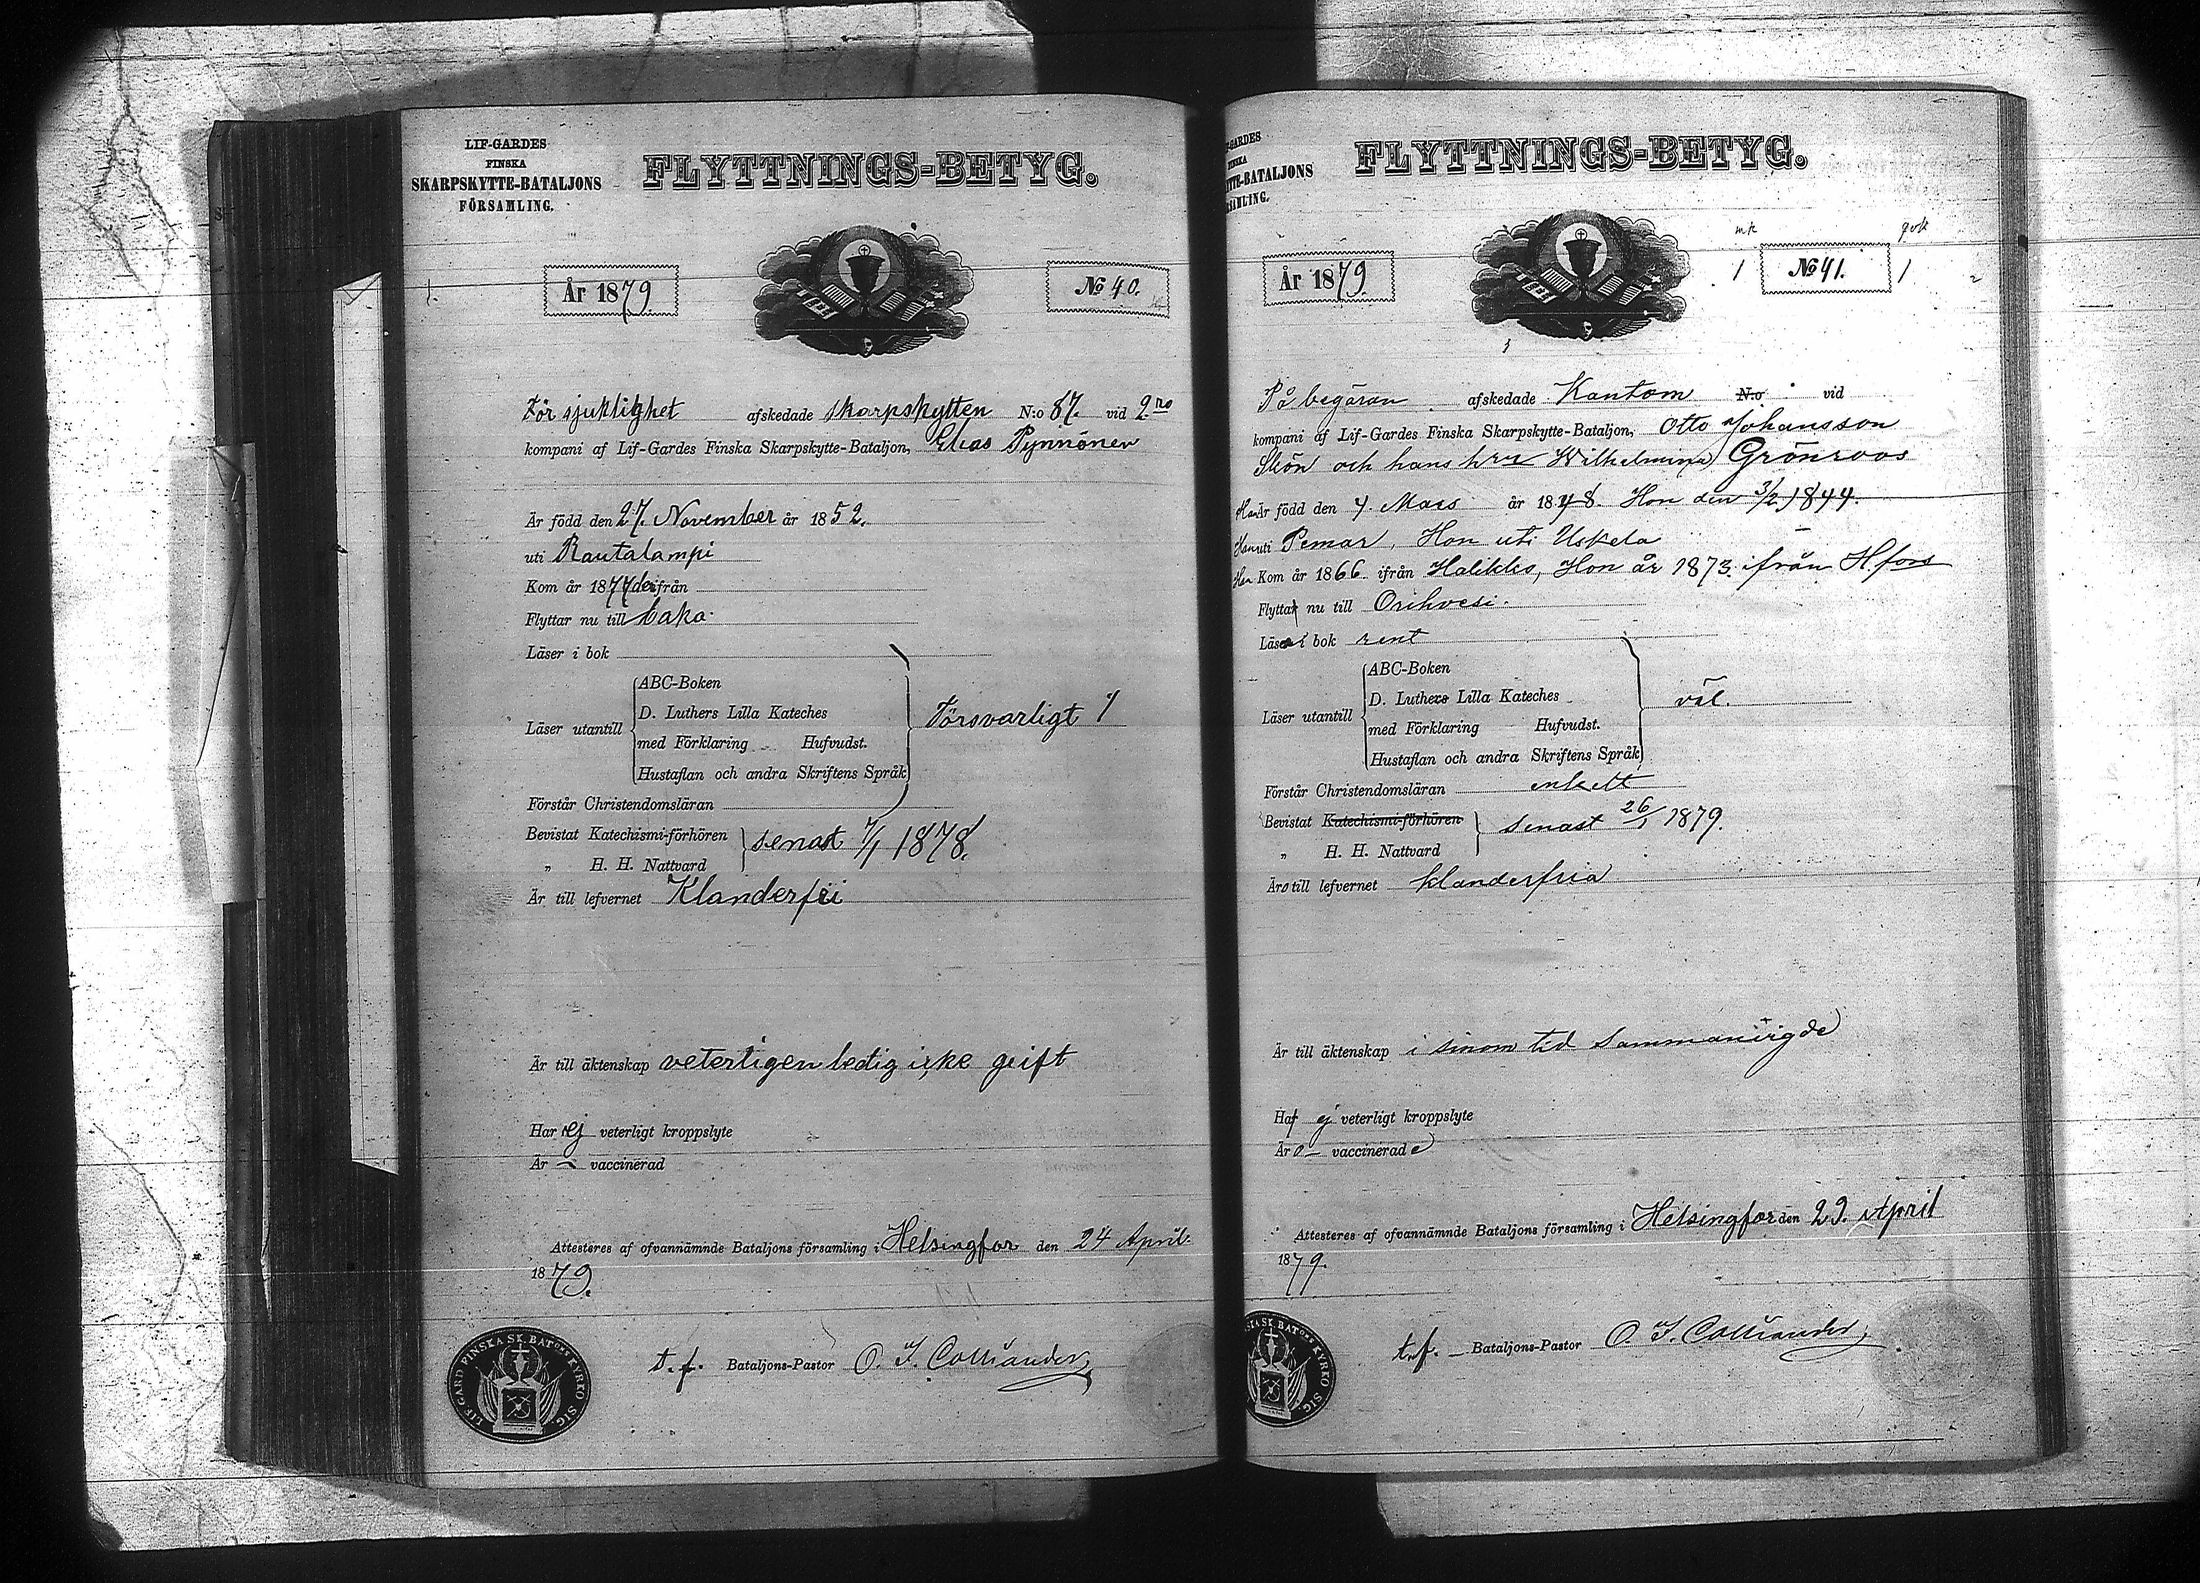 LIF-GARDES
FINSKA
SKARPSKYTTE-BATALJONS
FÖRSAMLING.
FLYTTNINGS-BETYG.
År 1879.
No 40.
För sjuklighet afskedade skarpskytten N:o 87. vid 2ro
kompani af Lif-Gardes Finska Skarpskytte-Bataljon, Elias Pynnönen
Är född den 27. November år 1852.
uti Rautalampi
Kom år 1877 derifrån
Flyttar nu till
Läser i bok
Läser utantill
ABC-Boken
D. Luthers Lilla Kateches
med Förklaring Hufvudst.
Hustaflan och andra Skriftens Språk
Försvarligt
Förstår Christendomsläran
Bevistat Katechismi-förhören
„ H. H. Nattvard
senast 7/1 1878.
Är till lefvernet Klanderfri
Är till äktenskap veterligen ledig icke gift
Har ej veterligt kroppslyte
Är — vaccinerad
Attesteras af ofvannämnde Bataljons församling i Helsingfor den 24 April
1879.
t.f. Bataljons-Pastor O. F. Colliander
LIF GARD FINSKA SK. BATONS KYRKO SIG.
-GARDES
FINSKA
TTE-BATALJONS
RSAMLING.
FLYTTNINGS-BETYG.
År 1879.
mk
1
No 41.
1
På begäran afskedade Kantorn N:o vid
kompani af Lif-Gardes Finska Skarpskytte-Bataljon, Otto Johansson
Skön och hans hru Wilhelmina Grönroos
Han Är född den 4. Mars år 1848. Hon den 3/2 1844.
Han uti Pemar, Hon uti Uskela
Han Kom år 1866 ifrån Halikko, Hon år 1873. ifrån H.fors
Flytta nu till Orihvesi.
Läsa i bok rent
Läser utantill
ABC-Boken
D. Luthers Lilla Kateches
med Förklaring Hufvudst.
Hustaflan och andra Skriftens Språk
väl.
Förstår Christendomsläran enkelt
Bevistat Katechismi-förhören
„ H. H. Nattvard
senast 26/1 1879.
Äro till lefvernet klanderfria
Är till äktenskap i sinom tid sammanvigde
Haf ej veterligt kroppslyte
Äro — vaccinerade
Attesteras af ofvannämnde Bataljons församling i Helsingfor den 29. April
1879.
t.f. — Bataljons-Pastor O. F. Colliander
SKA SK. BATONS KYRKO SIG.